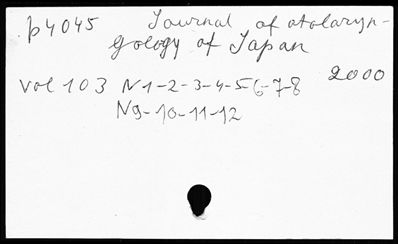 p4045 Journal of otolaryn-
gology of Japan
vol 103 N1-2-3-4-5-6-7-8 2000
N9-10-11-12